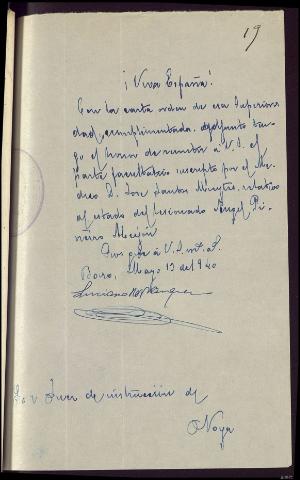 19
¡Viva España!
Con la carta orden de esa Superiori
dad, cumplimentada, adjunto ten
go el honor de remitir à V.S. el
parte facultativo suscripto por el Mé
dico D. Jose Santos Maystre, relativo
al estado del lesionado Angel Pi
ñeiro
Dios gde à V.S. m. a.
Boiro, Mayo 13 del 940
Luciano
Sr. Juez de instrucción de
Noya